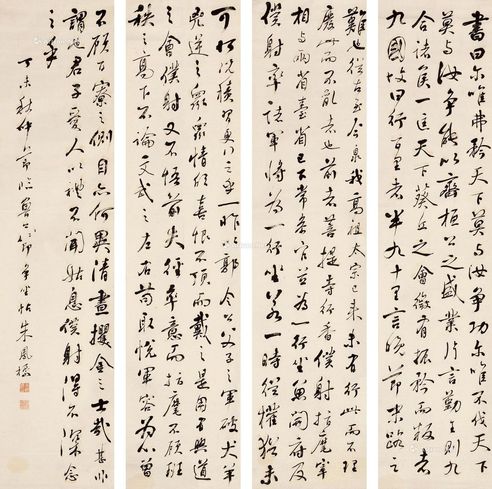 書曰尔唯弗矜天下莫与汝争功尔唯不伐天下
莫与汝争能以齊桓公之盛業片言勤王則九
合諸侯一匡天下葵丘之會微有振矜而叛者
九國故曰行百里者半九十里言晚節末路之
難也從古至今泉我高祖太宗已来未有行此而不理
廢此而不亂者也前者菩提寺行香僕射指麾宰
相与兩省臺省已下常参官並為一行坐魚開府及
僕射率諸軍將為一行坐若一時從權猶未
可何况積習更行之乎一昨以郭令公父子之軍破犬羊
兇逆之衆衆情欣喜恨不頂而戴之是用有興道
之會僕射又不悟前失徑率意而指麾不顧班
秩之高下不論文武之左右苟取悦軍容為心曾
不顧百寮之側目亦何異清晝攫金之士哉甚非
謂也君子愛人以禮不聞姑息僕射得不深念
之乎
丁未秋仲節臨魯公争坐帖朱鳳標